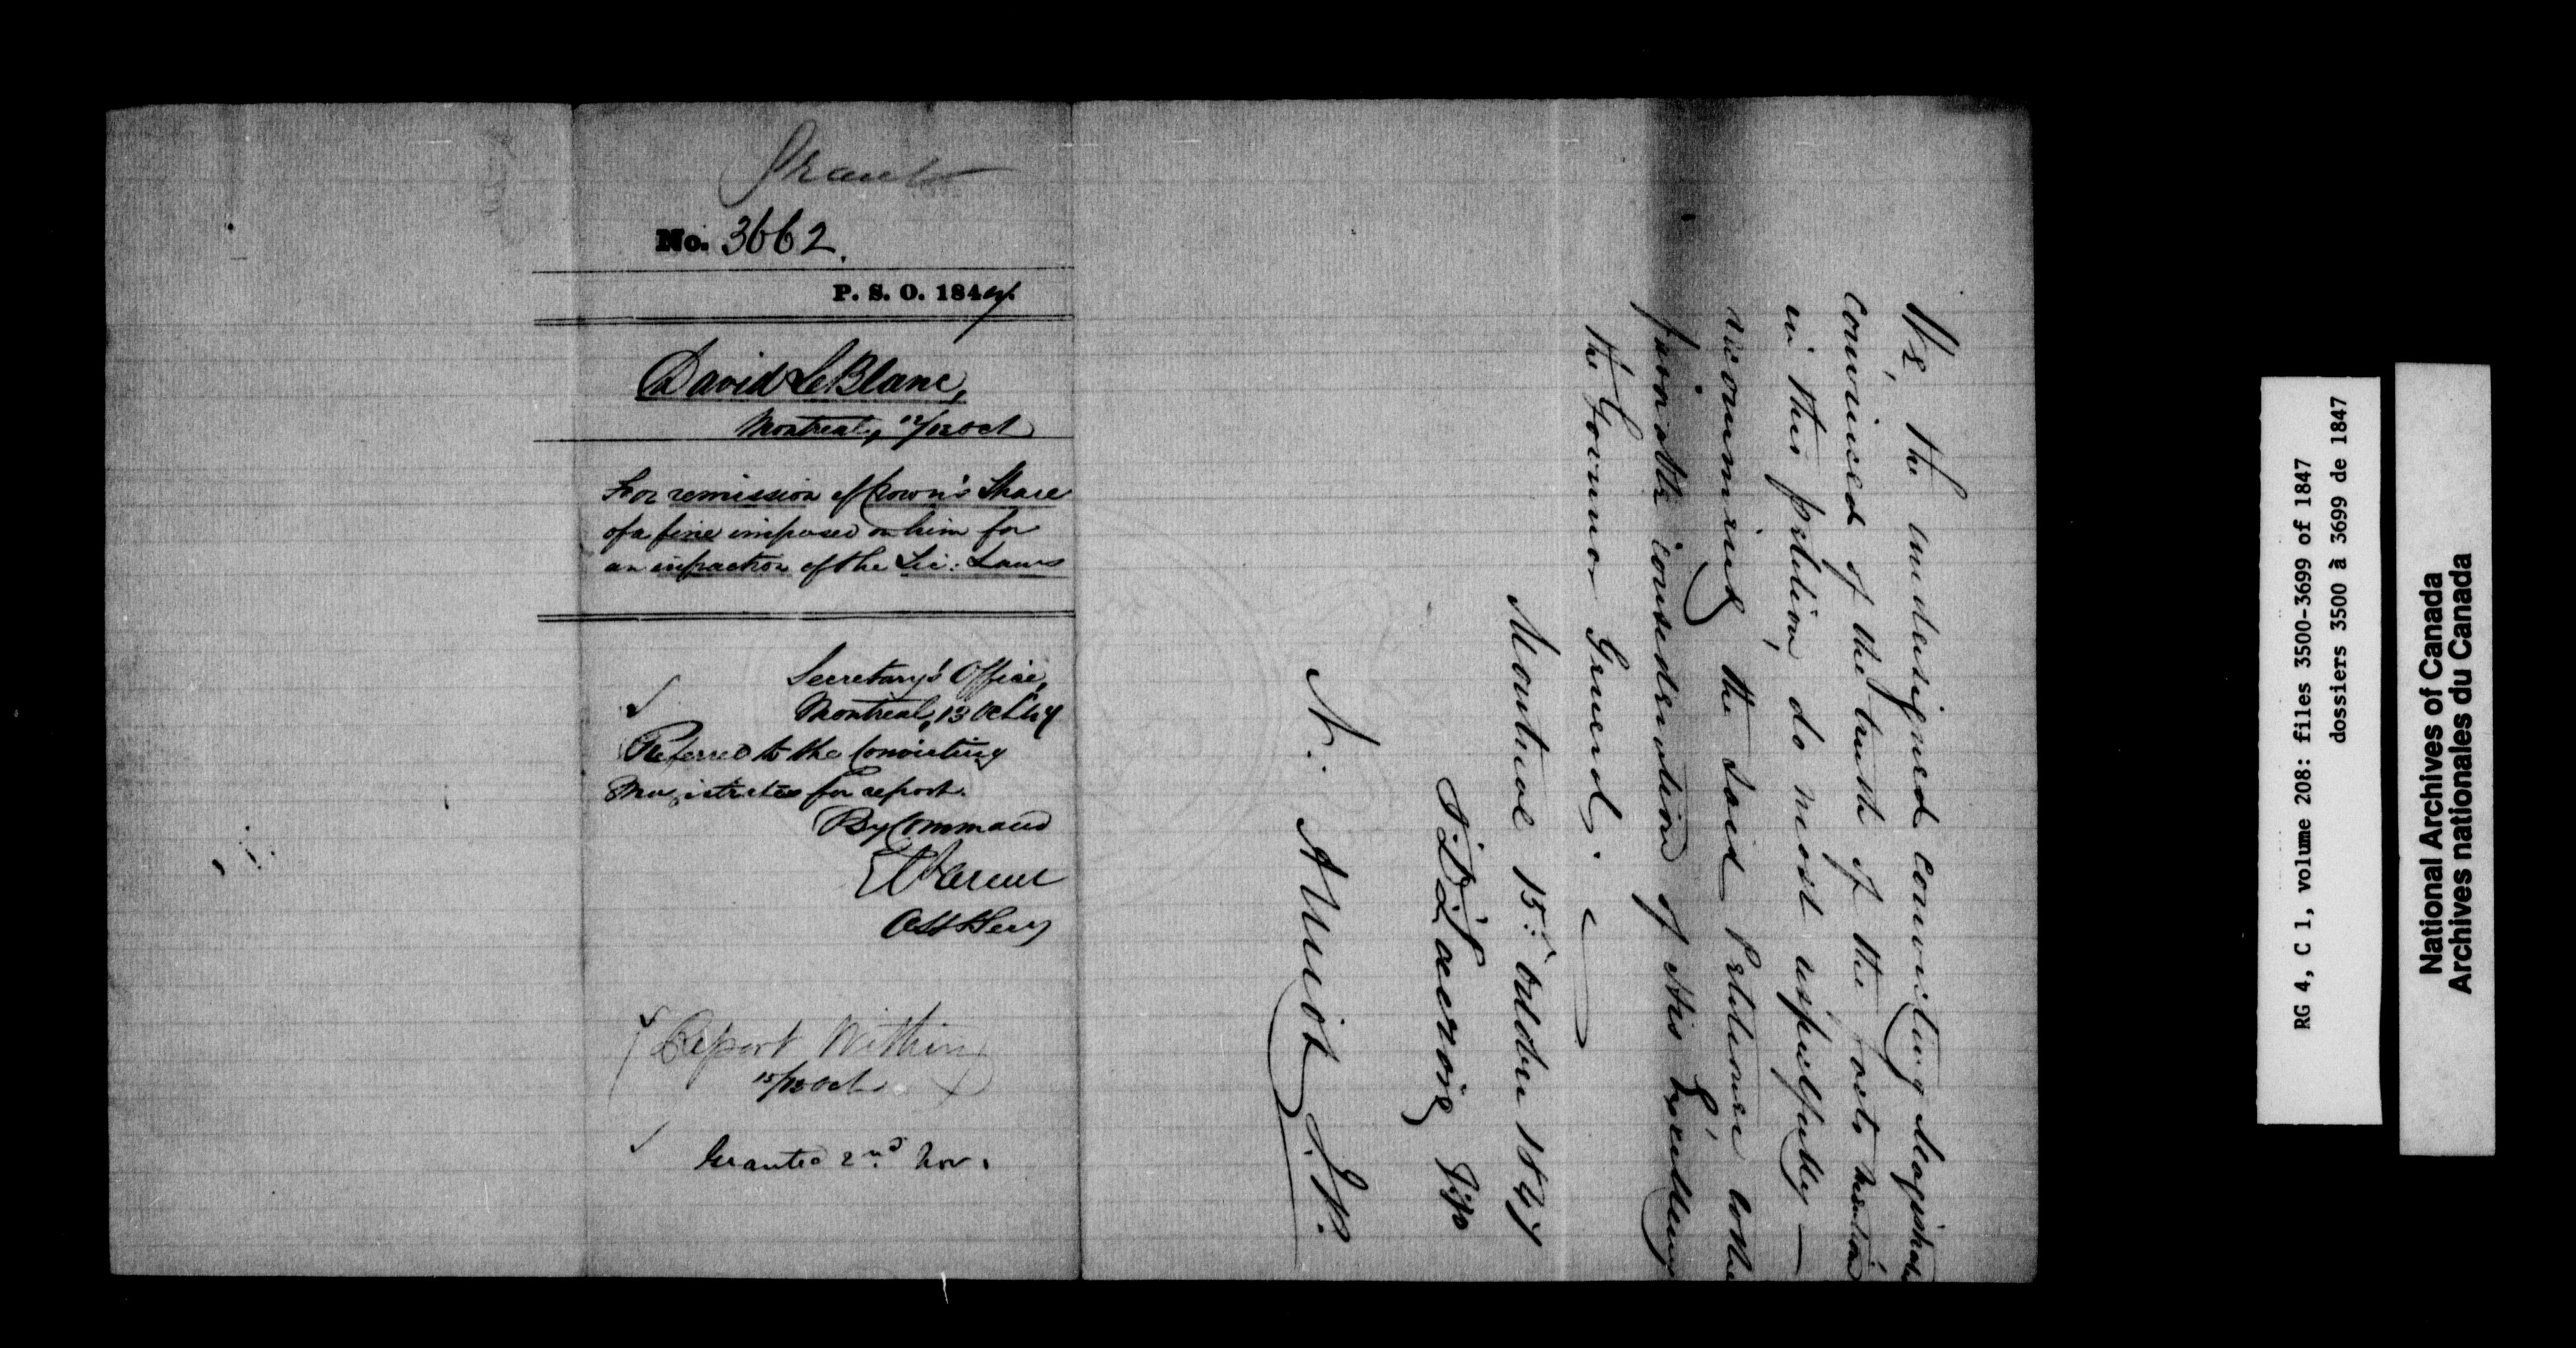 Grant
No. 3662.
P. S. O. 1847.
David LeBlanc,
Montreal, 12/12 Oct
For remission of Crown's Share
of a fine imposed on him for
an infraction of the Lic: Laws
Secretary's Office,
Montreal, 13 Oct 47
Referred to the Convicting
Magistrates for report.
By Command
E Parent
Asst Secy
Report Within
15/18 Oct
Granted 2nd Nov.
We, the undersigned Convicting Magistrates
Convinced of the truth of the facts mention
in this petition, do most respectfully —
recommend the said Petitioner to the
favorable consideration of His Excellency,
the Governor General.
Montreal 15th October 1847
N. Amiot J.P.
RG 4, C 1, volume 208: files 3500-3699 of 1847
dossiers 3500 à 3699 de 1847
National Archives of Canada
Archives nationales du Canada